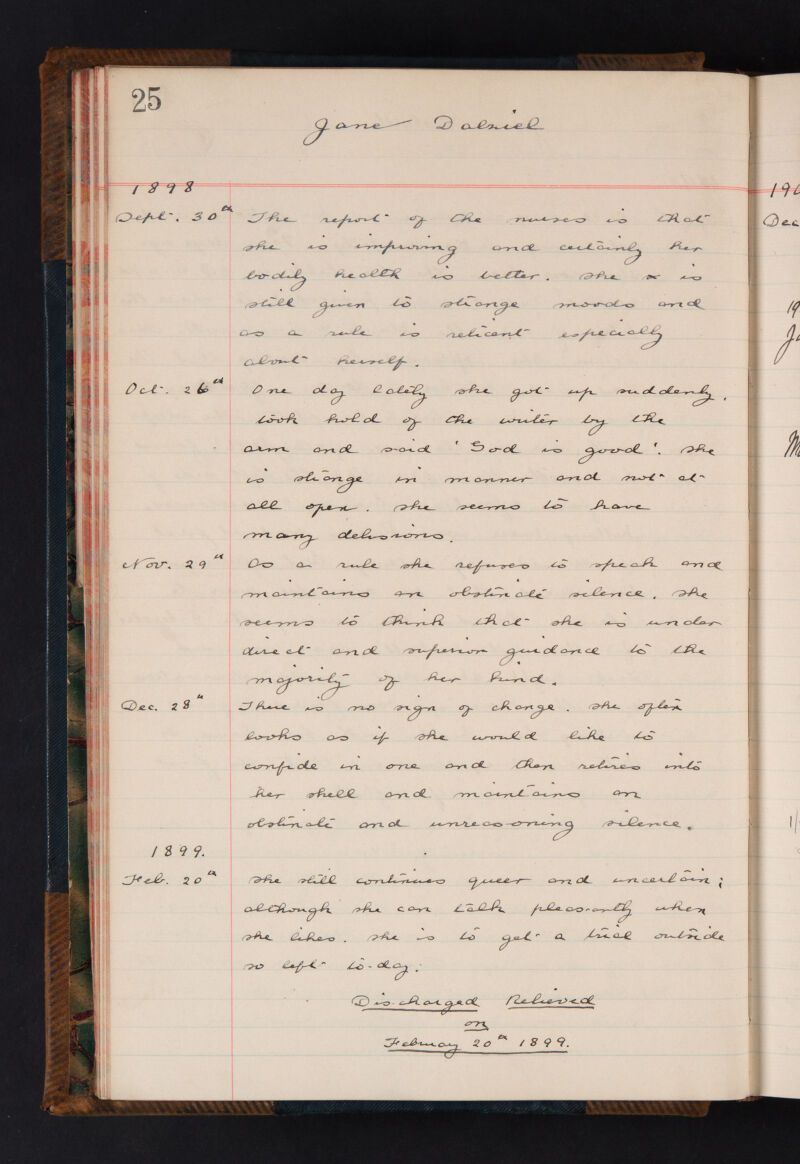 25
Jane Dalziel
1898
Sept. 30th The report of the nurses is that
she is improving and certainly her
bodily health is better. She x is
still given to strange moods and
as a rule is reticent especially
about herself.
Oct. 26th One day lately she got up suddenly,
took hold of the writer by the
arm and said 'God is good'. She
is strange in manner and not at
all open. She seems to have
many delusions.
Nov. 29th As a rule she refuses to speak and
maintains an obstinate silence. She
seems to think that she is under
direct and superior guidance to the
majority of her kind.
Dec. 28th There is no sign of change. She often
looks as if she would like to
confide in one and then retires into
her shell and maintains an
obstinate and unreasoning silence.
1899.
Feb. 20th She still continues queer and uncertain;
although she can talk pleasantly when
she likes. She is to get a trial outside
so left to-day:
Discharged Relieved
on
February 20th 1899.
190
Dec
19